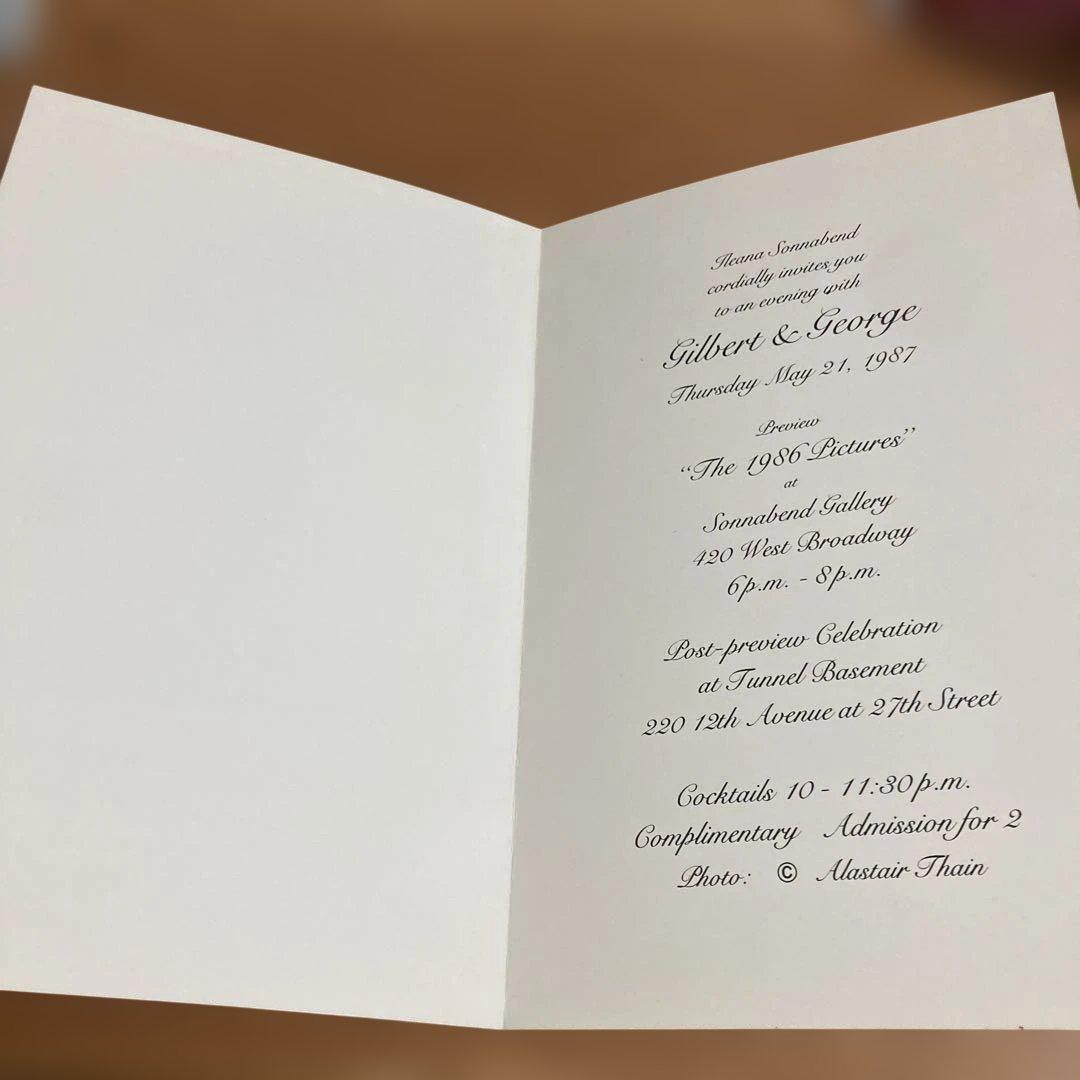 Ileana Sonnabend
cordially invites you
to an evening with
Gilbert & George
Thursday May 21, 1987
Preview
“The 1986 Pictures”
at
Sonnabend Gallery
420 West Broadway
6p.m. - 8p.m.
Post-preview Celebration
at Tunnel Basement
220 12th Avenue at 27th Street
Cocktails 10 - 11:30p.m.
Complimentary Admission for 2
Photo: © Alastair Thain